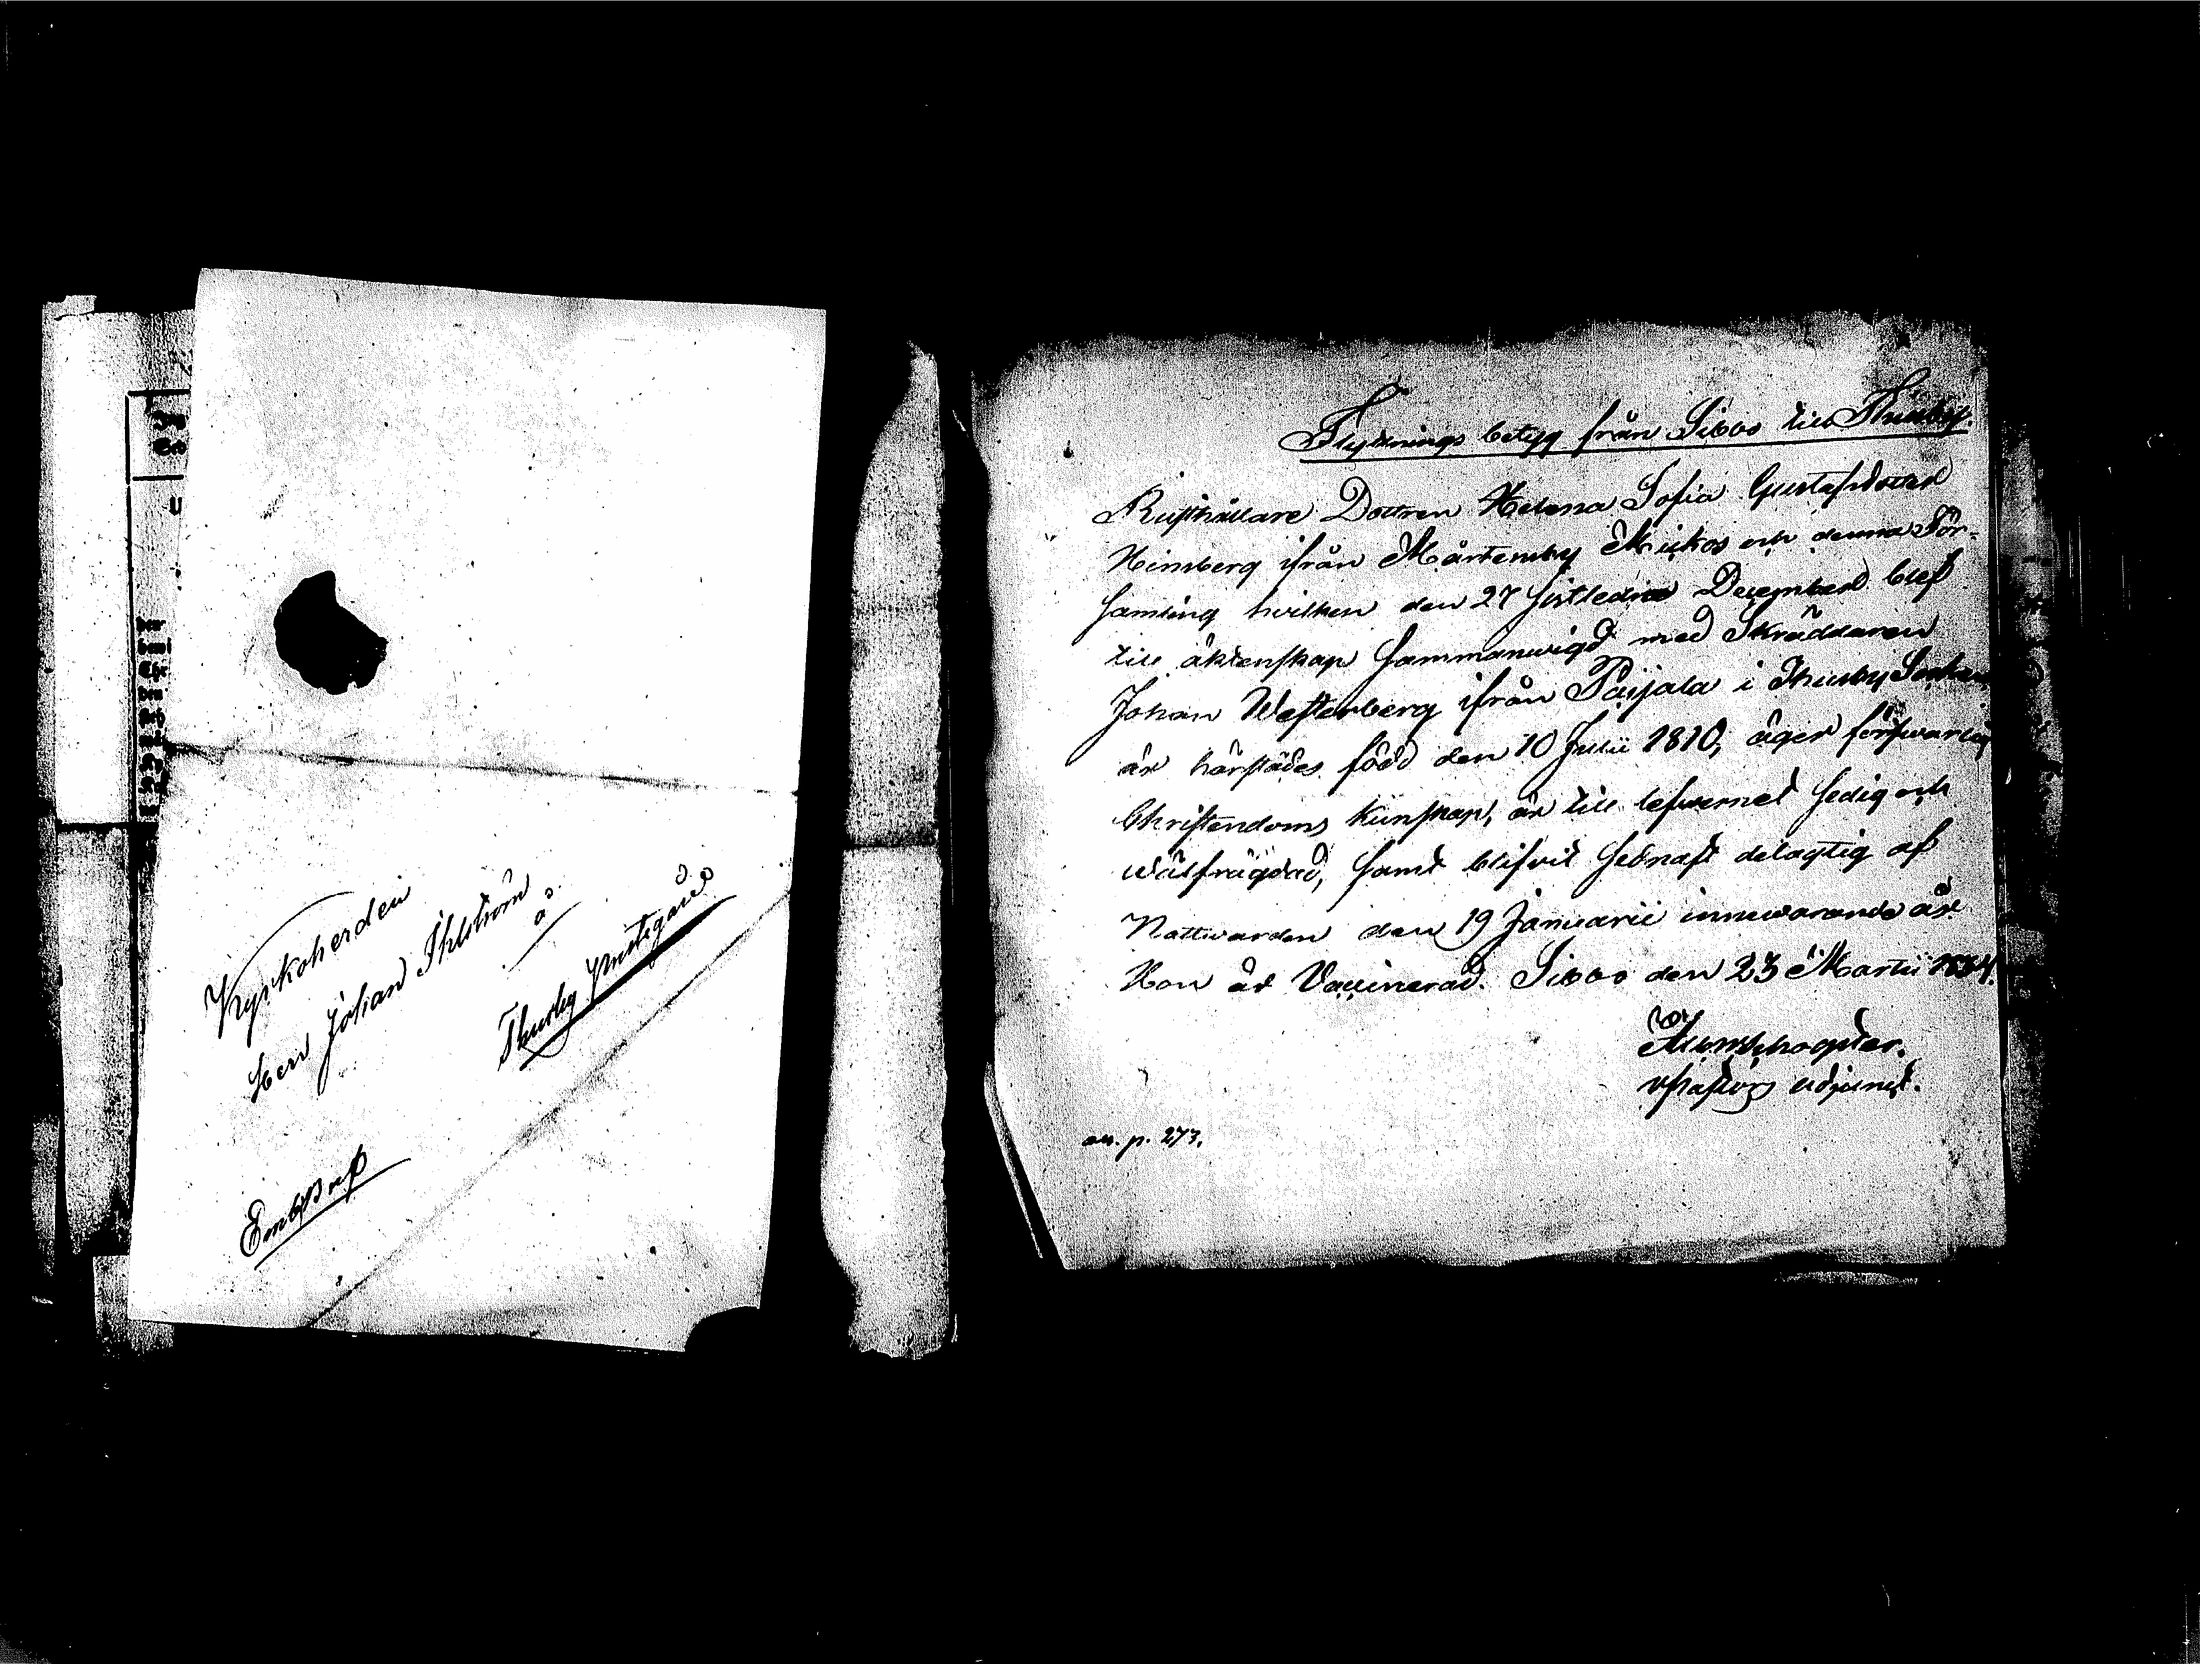 Kyrkoherden
Herr Johan Ihlström
å
Thusby Prästgård
Embsbref
Flyttnings betyg från Sibbo till Thusby.
Rusthållare Dottren Helena Sofia Gustafsdotter
Heinberg ifrån Mårtensby Mickos och denna För-
samling hvilken den 27 sistledne December blef
till äktenskap sammanvigd med Skräddaren
Johan Westerberg ifrån Paijala i Thusby Socken
är härstädes född den 10 Julii 1810, äger försvarlig
Christendoms kunskap, är till lefvernet sedig och
välfrägdad, samt blifvit sednast delagtig af
Nattvarden den 19 Januarii innevarande år
Hon är Vaccinerad. Sibbo den 23 Martii 1834.
adjunct.
p. 273.